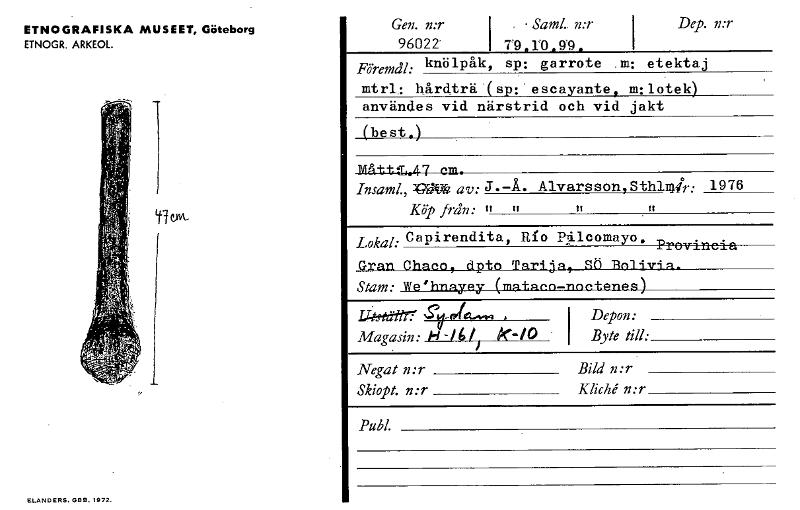 ETNOGRAFISKA MUSEET, Göteborg
ETNOGR. ARKEOL.
47cm
ELANDERS. GBG. 1972.
Gen. n:r Saml. n:r Dep. n:r
96022 79.10.99.
Föremål: knölpåk, sp: garrote m: etektaj
mtrl: hårdträ (sp: escayante, m:lotek)
användes vid närstrid och vid jakt
(best.)
Mått:L.47 cm.
Insaml., av: J.-Å. Alvarsson,Sthlm År: 1976
Köp från: " " " "
Lokal: Capirendita, Río Pilcomayo. Provincia
Gran Chaco, dpto Tarija, SÖ Bolivia.
Stam: We'hnayey (mataco-noctenes)
Utställt: Sydam. Depon:
Magasin: H-161, K-10 Byte till:
Negat n:r Bild n:r
Skiopt. n:r Kliché n:r
Publ.